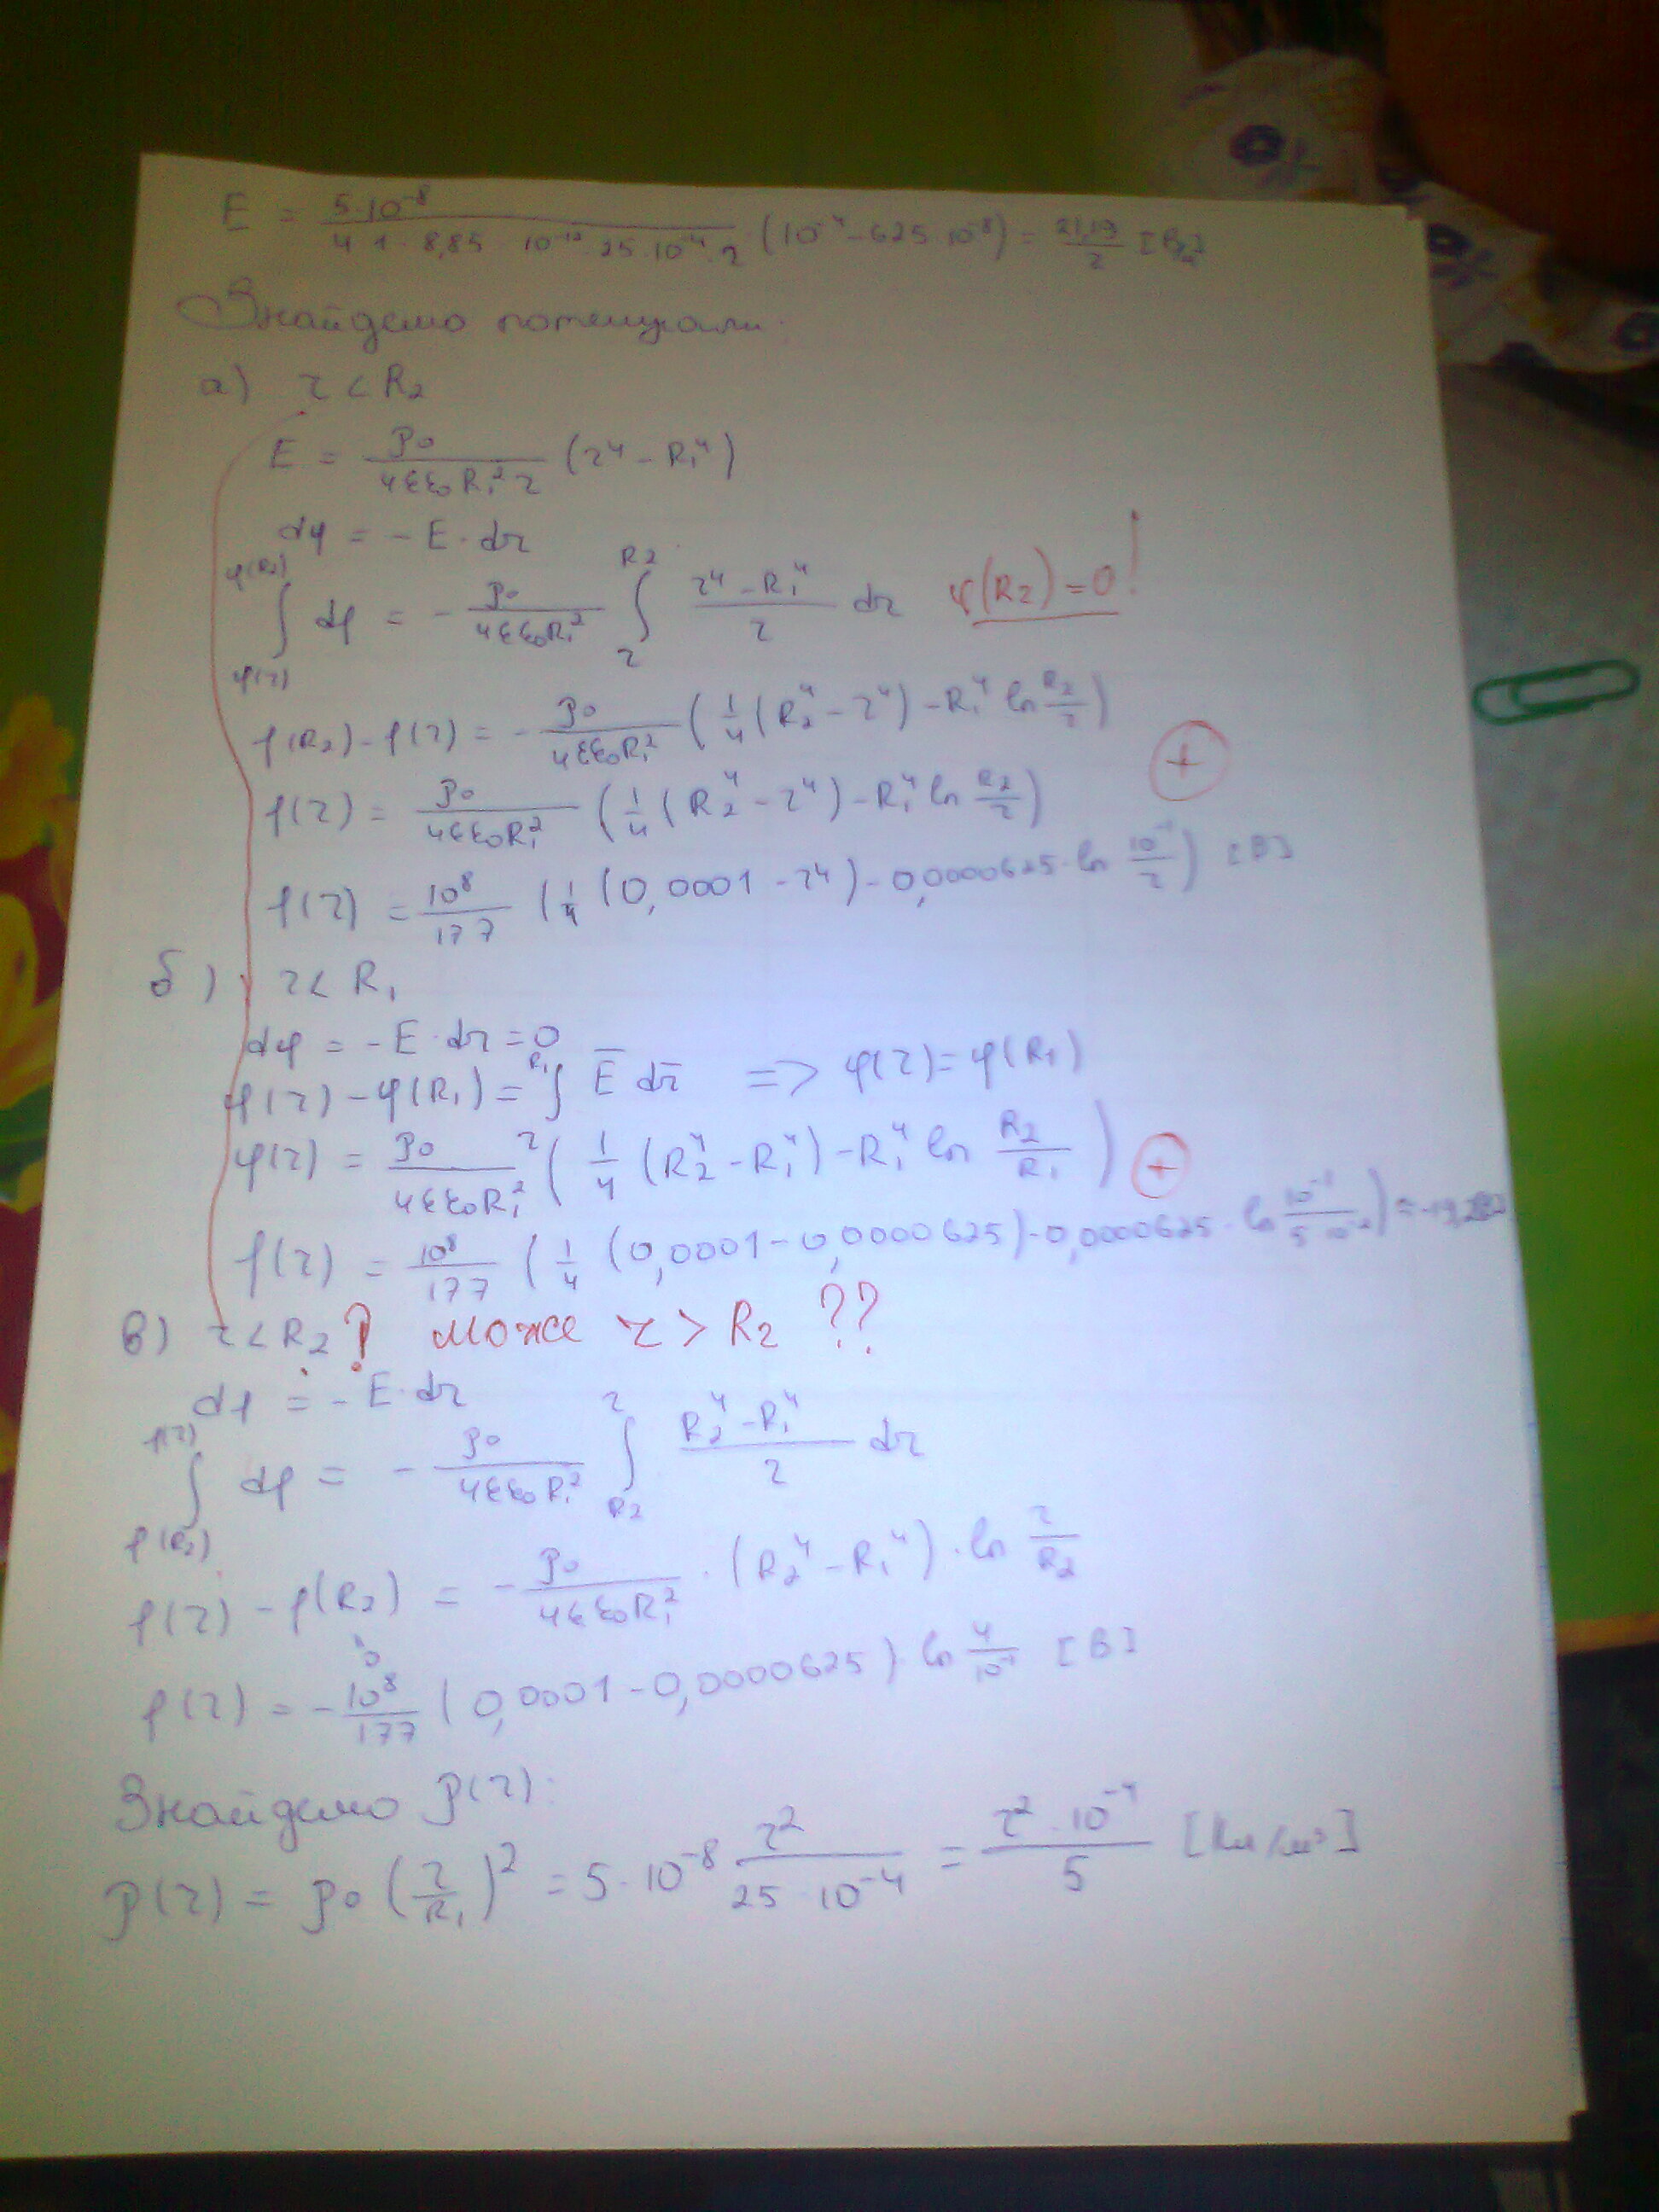 E = 5·10⁻⁸ / (4·1·8,85·10⁻¹²·25·10⁻⁴·r) (10⁻⁴ − 625·10⁻⁸) = 21,19/r
Знайдемо потенціали:
а) r < R₂
E = ρ₀/(4εε₀R₁²r) (r⁴ − R₁⁴)
dφ = −E·dr
∫_{φ(r)}^{φ(R₂)} dφ = − ρ₀/(4εε₀R₁²) ∫_r^{R₂} (r⁴ − R₁⁴)/r dr φ(R₂) = 0!
φ(R₂) − φ(r) = − ρ₀/(4εε₀R₁²) (1/4 (R₂⁴ − r⁴) − R₁⁴ ln R₂/r)
φ(r) = ρ₀/(4εε₀R₁²) (1/4 (R₂⁴ − r⁴) − R₁⁴ ln R₂/r) +
φ(r) = 10⁸/177 (1/4 (0,0001 − r⁴) − 0,0000625·ln 10⁻¹/r) [В]
б) r < R₁
dφ = −E·dr = 0
φ(r) − φ(R₁) = ∫_r^{R₁} E̅ dr̅ => φ(r) = φ(R₁)
φ(r) = ρ₀/(4εε₀R₁²) (1/4 (R₂⁴ − R₁⁴) − R₁⁴ ln R₂/R₁) +
φ(r) = 10⁸/177 (1/4 (0,0001 − 0,0000625) − 0,0000625·ln 10⁻¹/(5·10⁻²))
в) r < R₂ ? може r > R₂ ??
dφ = −E·dr
∫_{φ(R₂)}^{φ(r)} dφ = − ρ₀/(4εε₀R₁²) ∫_{R₂}^r (R₂⁴ − R₁⁴)/r dr
φ(r) − φ(R₂) = − ρ₀/(4εε₀R₁²) · (R₂⁴ − R₁⁴) · ln r/R₂
0
φ(r) = − 10⁸/177 (0,0001 − 0,0000625) · ln r/10⁻¹ [В]
Знайдемо ρ(r):
ρ(r) = ρ₀ (r/R₁)² = 5·10⁻⁸ r²/(25·10⁻⁴) = r²·10⁻⁴/5 [Кл/м³]